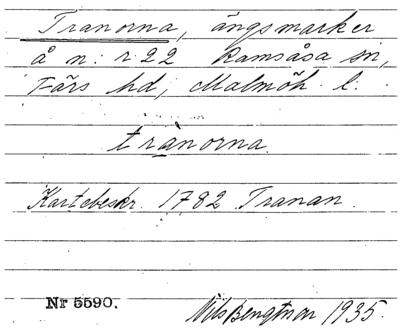 Tranorna, ängsmarker
å n: r 22 Ramsåsa sn,
Färs hd, Malmöh. l.
tranorna
Kartebeskr. 1782 Tranan.
Nr 5590.
Nils Bengtsson 1935.